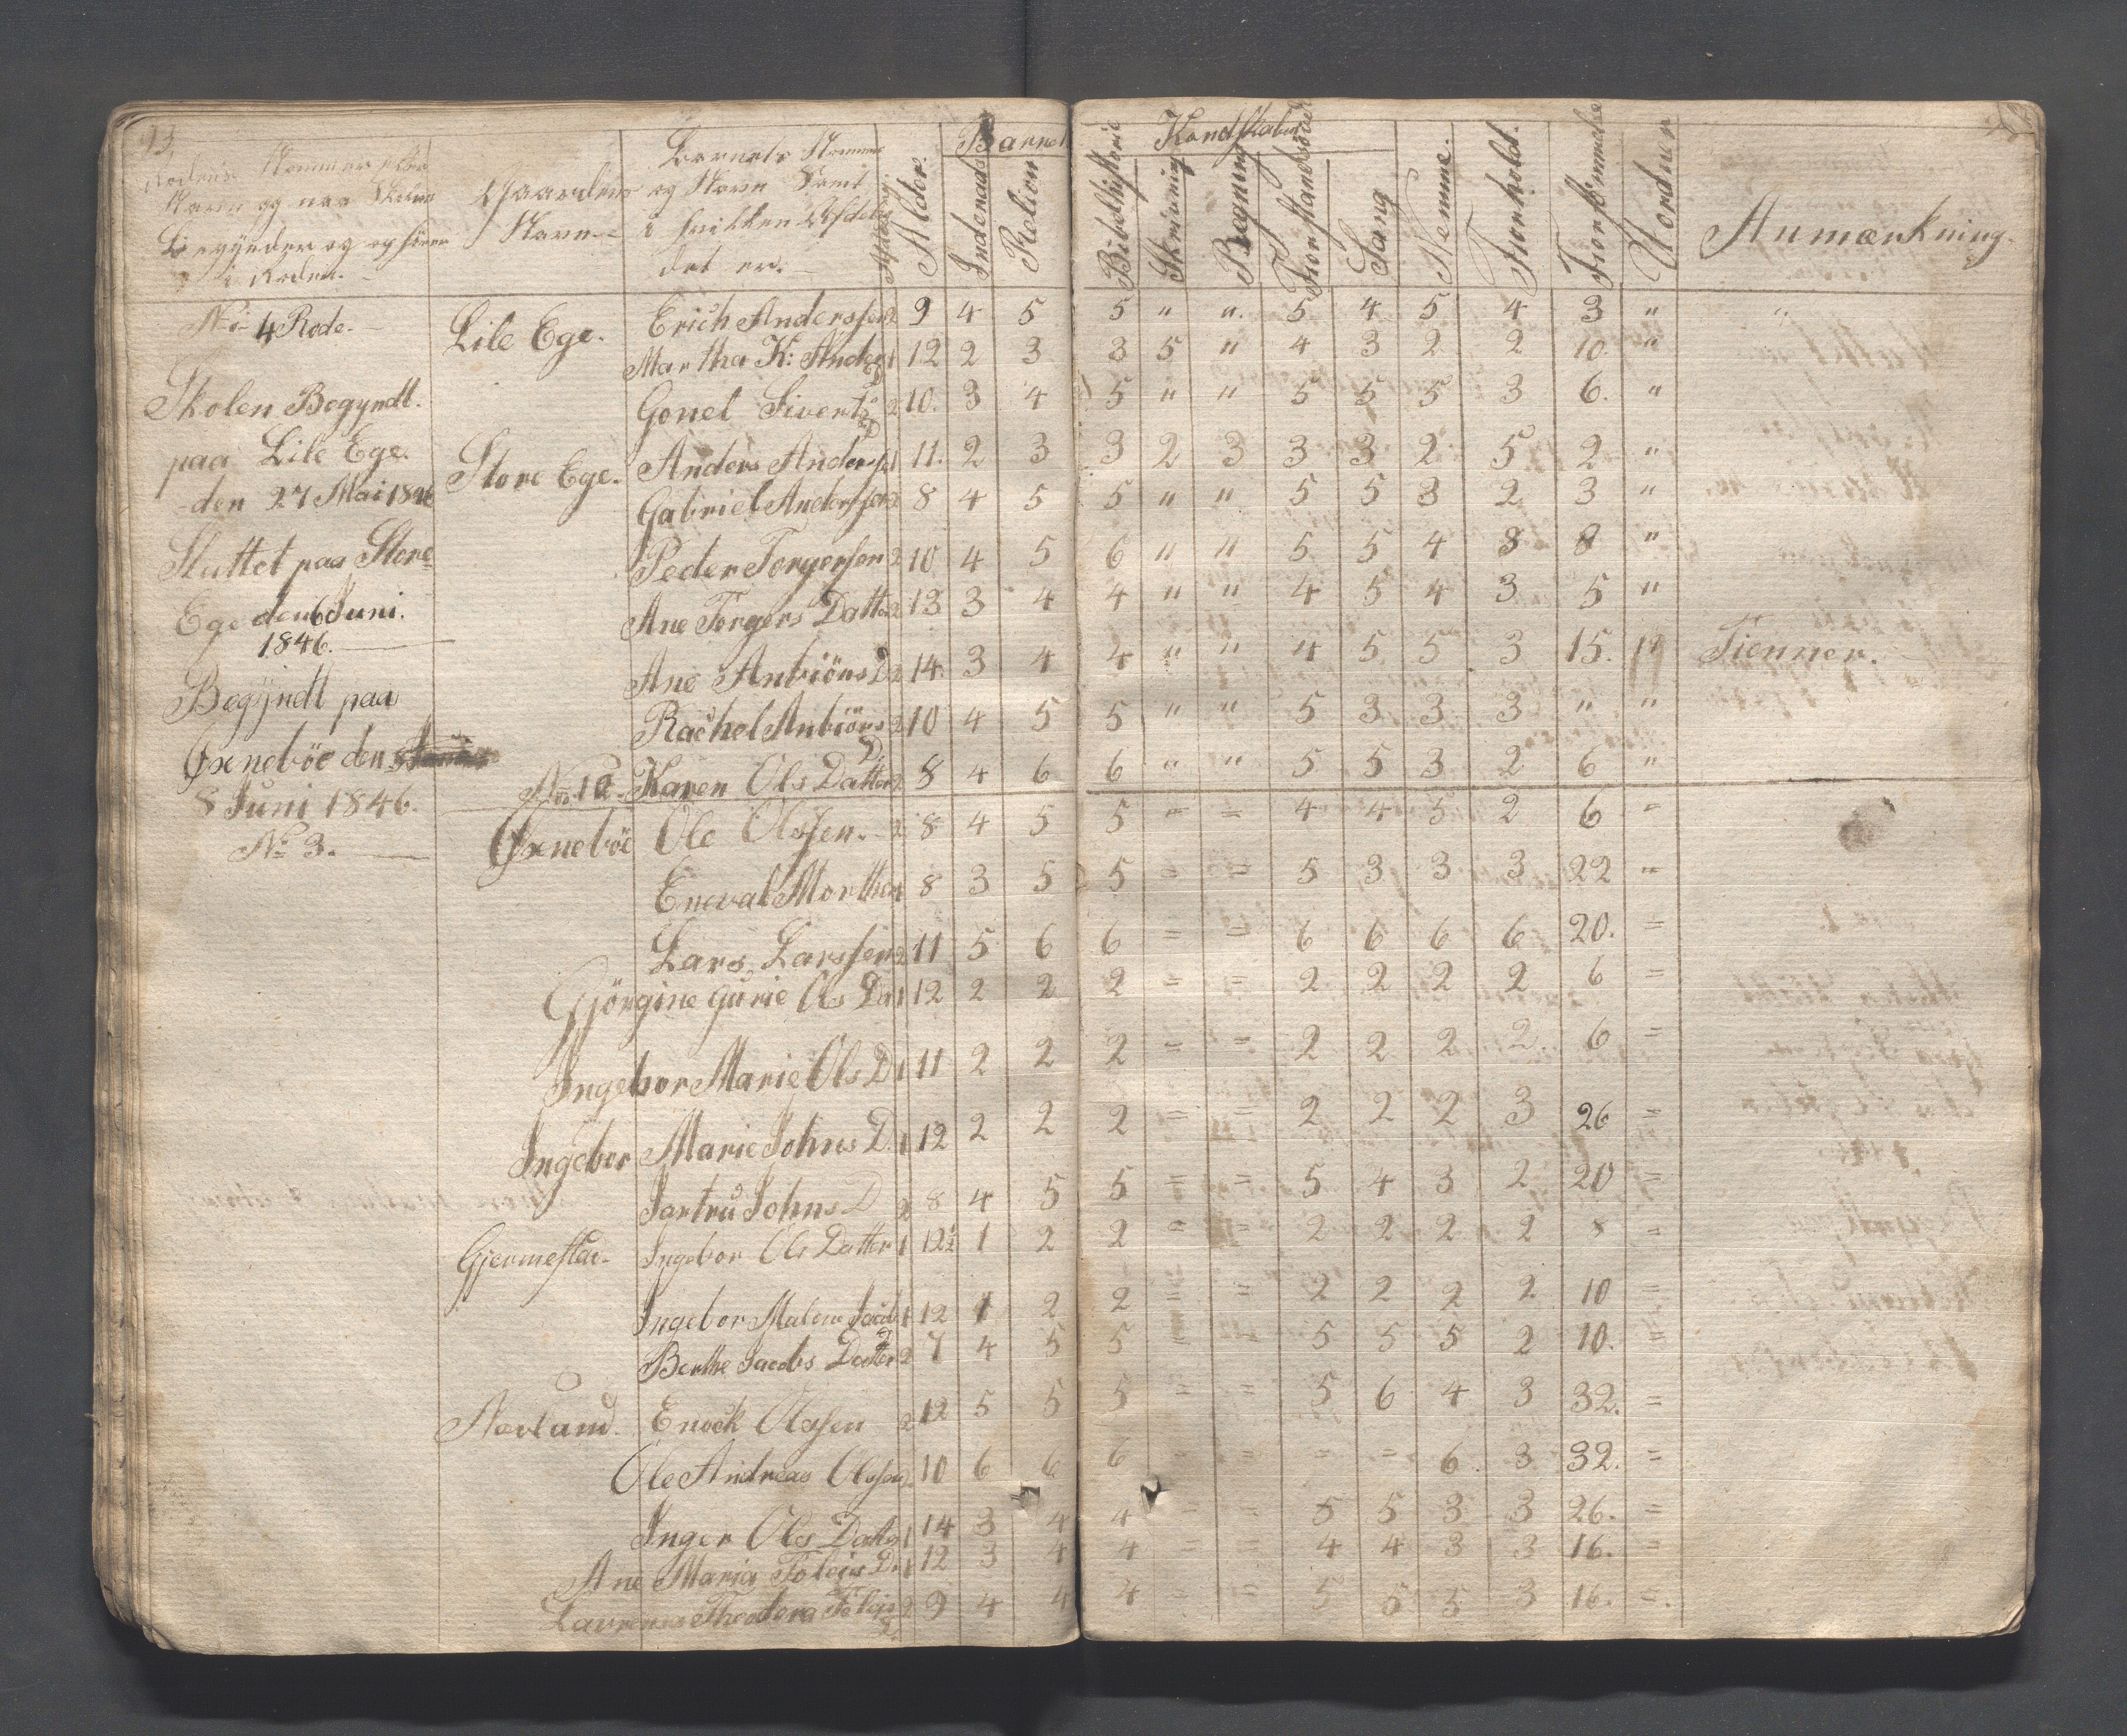 Rodens Nommer eller
Navn og naar Skolen
Begÿnder og ophörer
i Roden.
Gaardens
Navn
Barnets Nommer
og Navn Samt
i hvilken Afdeling
det er.
Afdeling.
Alder.
Barnets Kondskaber
Indenads
Relion
Bibelhistorie
Skrivning
Regning
Forstandsövelse
Sang
Nemme.
Forhold.
Forsömmelse
Uorden
Anmærkning.
No 4 Rode. Lile Ege. Erich Anderssen 2 9 4 5 5 " ". 5 4 5 4 3 " "
Martha K: Anders D 1 12 2 3 3 5 " 4 3 2 2 10. "
Skolen Begyndt. Gonel Siverts D 2 10. 3 4 5 " " 5 5 5 3 6. "
paa Lile Ege. Store Ege. Anders Anderssen 1 11. 2 3 3 2 3 3 3 2 5 2 "
den 27 Mai 1846 Gabriel Anderssen 2 8 4 5 5 " " 5 5 3 2 3 "
Sluttet paa Store Peder Torgersen 2 10 4 5 6 " " 5 5 4 8 8 "
Ege den 6 Juni. Ane Torgers Datter 2 13 3 4 4 " " 4 5 4 3 5 "
1846.
Ane Anbiöns D 2 14. 3 4 4 " " 4 5 5 3 15. 19 Tienner.
Begÿndt paa Rachel Anbiörs D 2 10 4 5 5 " " 5 3 3 3 " "
Oxneböe den
No 10 Karen Ols Datter 2 8 4 6 6 " " 5 5 3 2 6 "
8 Juni 1846.
No 3.
Oxneböe Ole Olssen. 2 8 4 5 5 = = 4 4 5 2 6 =
Eneval Morthen 1 8 3 5 5 = = 5 3 3 3 22 =
Lars Larssen 2 11 5 6 6 = = 6 6 6 6 20. =
Gjörgine Gurie Ols Da 1 12 2 2 2 = = 2 2 2 2 6 =
Ingebor Marie Ols D 1 11 2 2 2 = = 2 2 2 2. 6 =
Ingebor Marie Johns D. 1 12 2 2 2 = = 2 2 2 3 26 =
Jartru Johns D 2 8 4 5 5 = = 5 4 3 2 20 =
Gjermestad. Ingebor Ols Datter 1 12½ 1 2 2 = = 2 2 2 2 8 =
Ingebor Malene Jacobs D 1 12 1 2 2 = = 2 2 2 2 10 =
Berthe Jacobs Datter 2 7 4 5 5 = = 5 5 5 2 10. =
Nevland. Enock Olssen 2 12 5 5 5 = = 5 6 4 3 32. =
Ole Andreas Olssen 2 10 6 6 6 = = = = 6 3 32. =
Inger Ols Datter 1 14 3 4 4 = = 5 5 3 3 26. =
Ane Maria Toleis D. 1 12 3 4 4 = = 4 4 3 3 16. =
Theodora Toleis 2 9 4 4 4 = = 5 5 5 3 16. =.